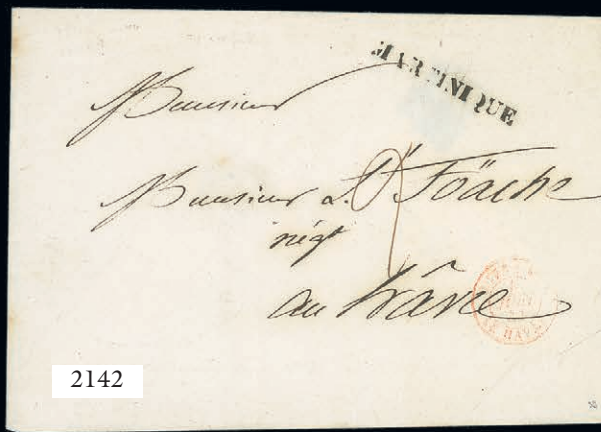 MARTINIQUE
Monsieur
Monsieur Foäche
négt
au hâvre
LE HAVRE
2142